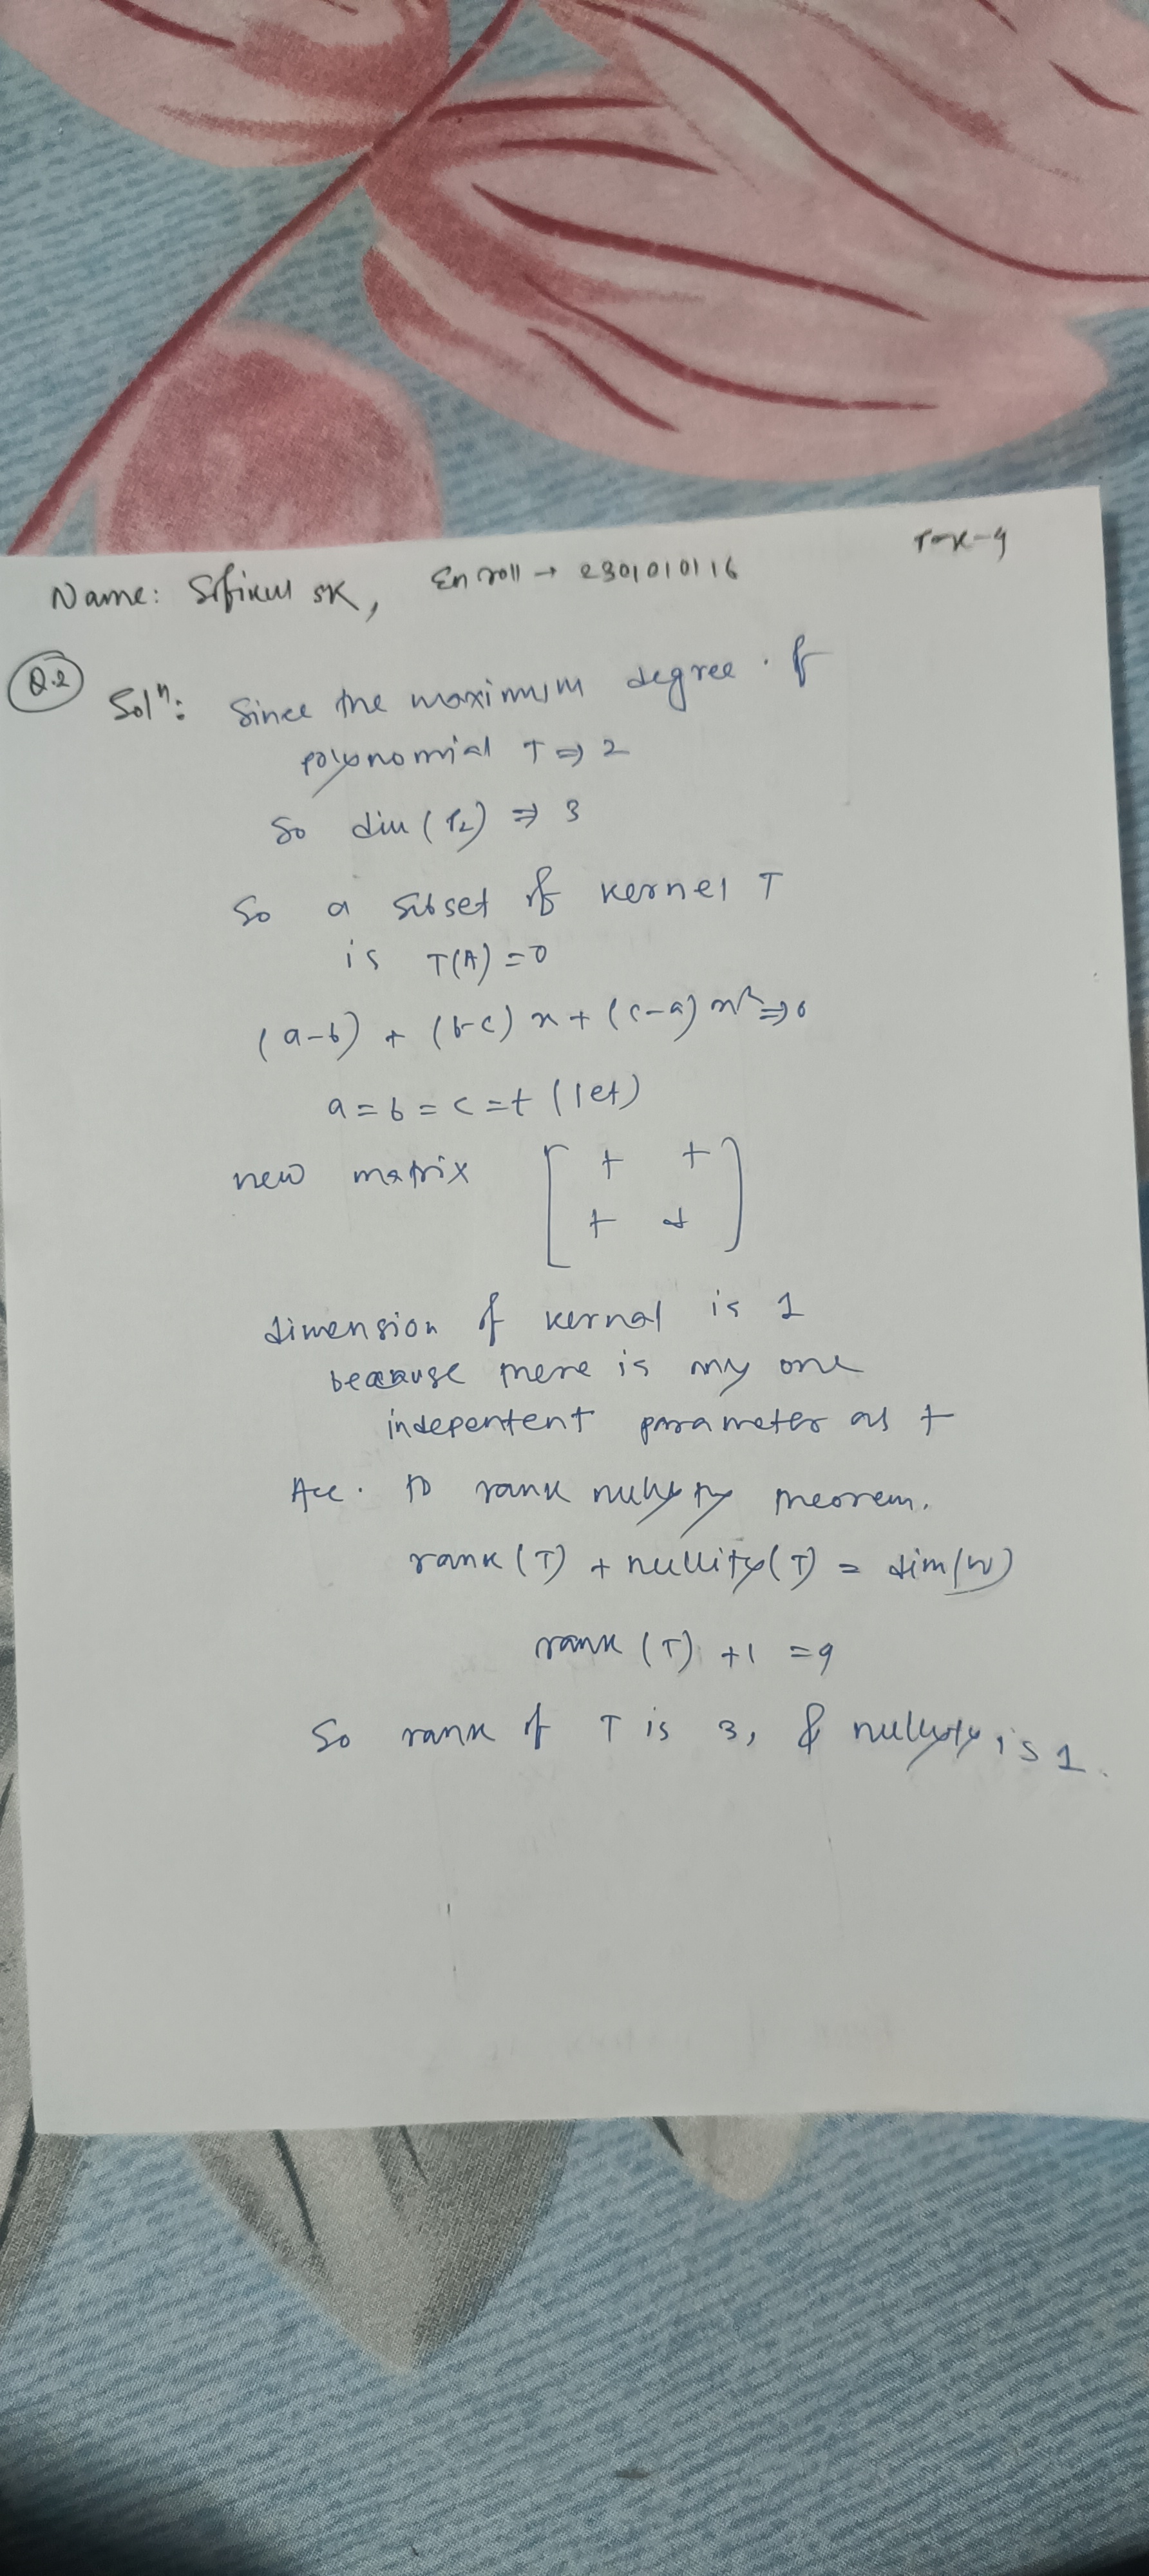 Name: Sofikul SK, Enroll → 2301010116
Q.2 Solⁿ: Since the maximum degree of
polynomial T ⇒ 2
So dim (P₂) ⇒ 3
So a subset of kernel T
is T(A) = 0
(a-b) + (b-c) x + (c-a) x² ⇒ 0
a = b = c = t (let)
new matrix [ t t
t t ]
dimension of kernal is 1
because there is only one
indepentent parameter as t
Acc. to rank nullity theorem.
rank (T) + nullity (T) = dim (W)
rank (T) + 1 = 4
So rank of T is 3, & nullity is 1.